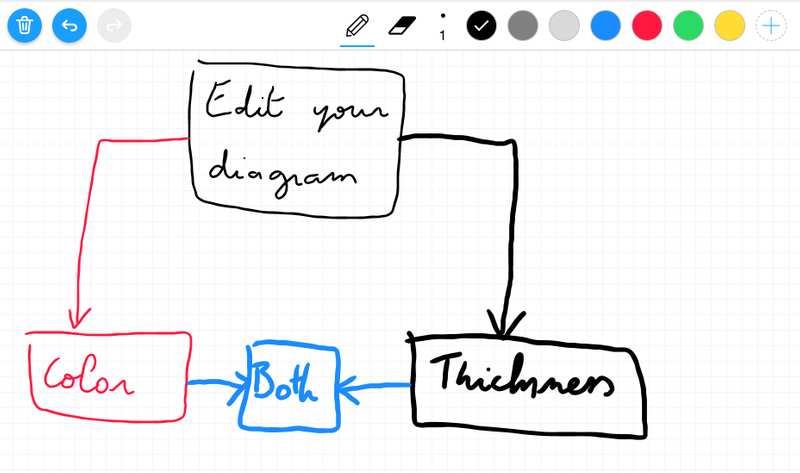 1
Edit your
diagram
Color
Both
Thickness